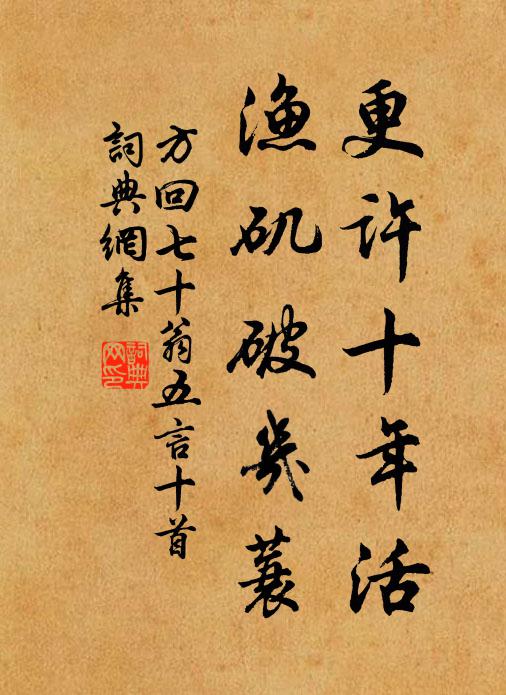 更许十年活
渔矶破几蓑
方回七十翁五言十首
詞典網集
詞典網印